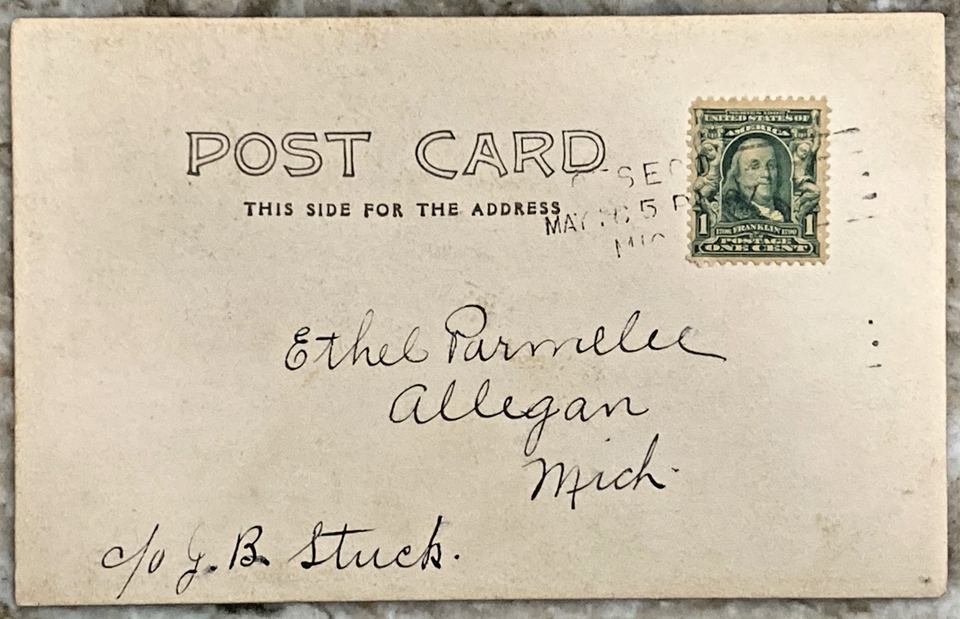 POST CARD
THIS SIDE FOR THE ADDRESS
MAY 5 P
UNITED STATES OF
AMERICA
1 1706 FRANKLIN 1790 1
POSTAGE
ONE CENT
Ethel Parmelee
Allegan
Mich.
c/o J. B. Stuck.